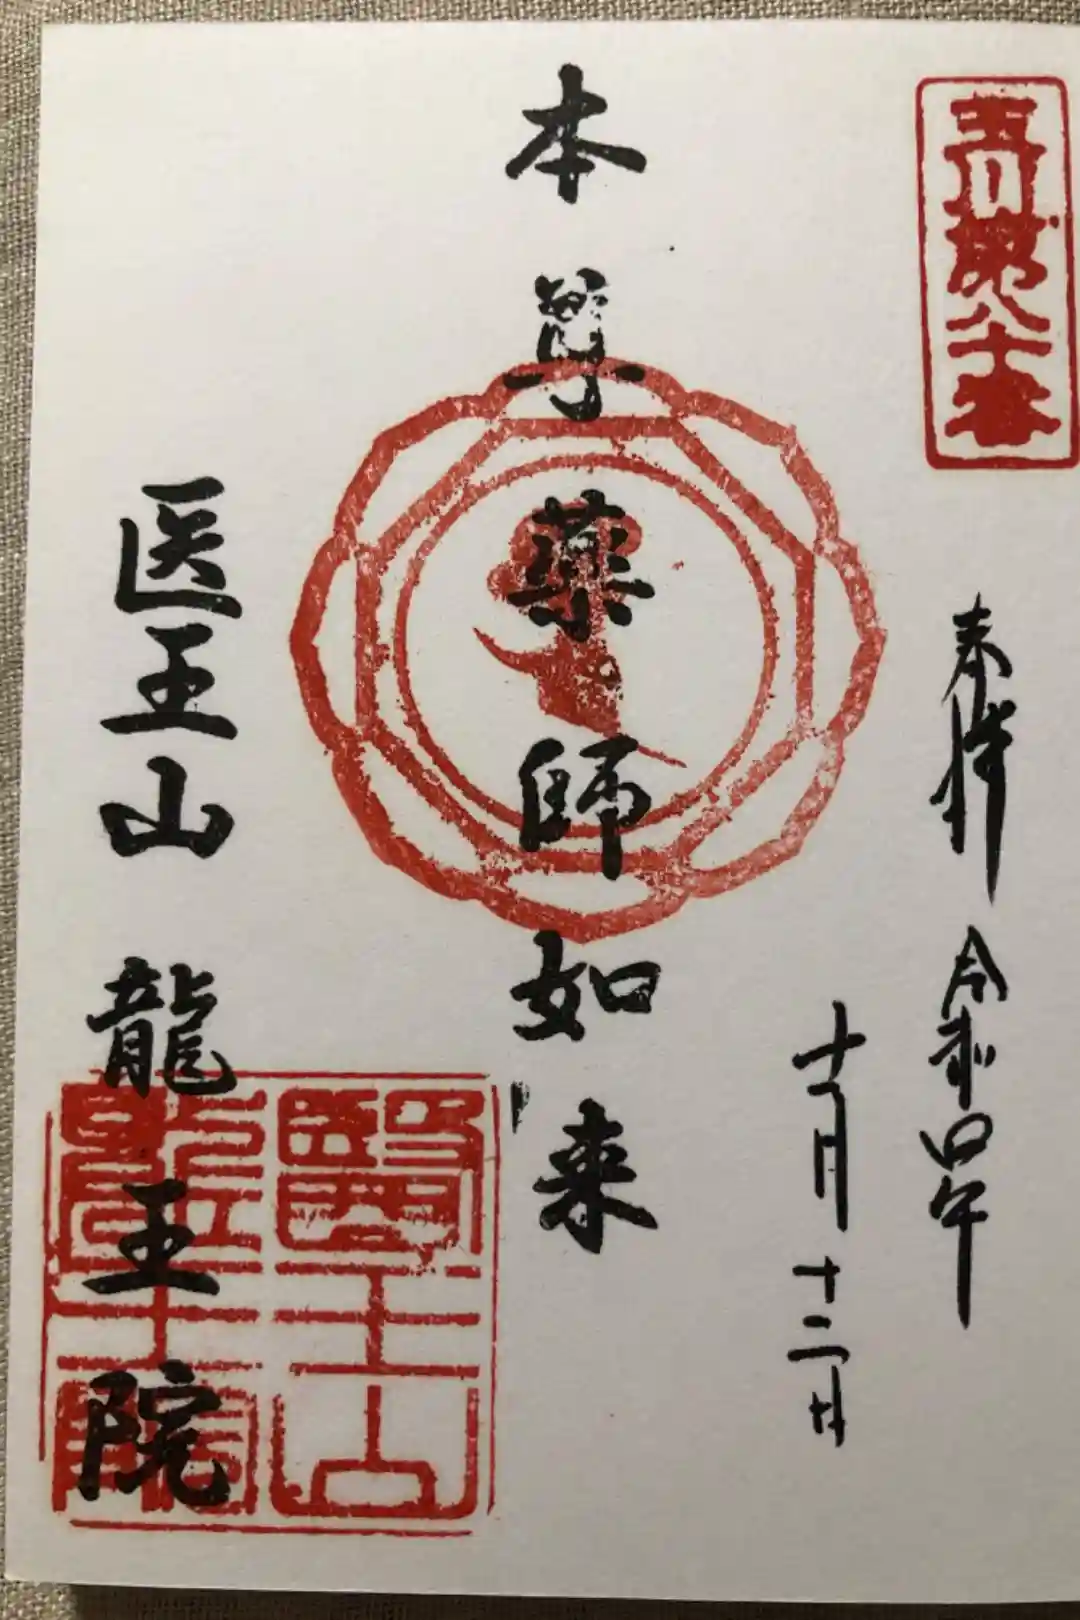 玉川第八十番
奉拝 令和四年
十一月十二日
本尊 薬師如来
医王山 龍王院
醫王山
龍王院